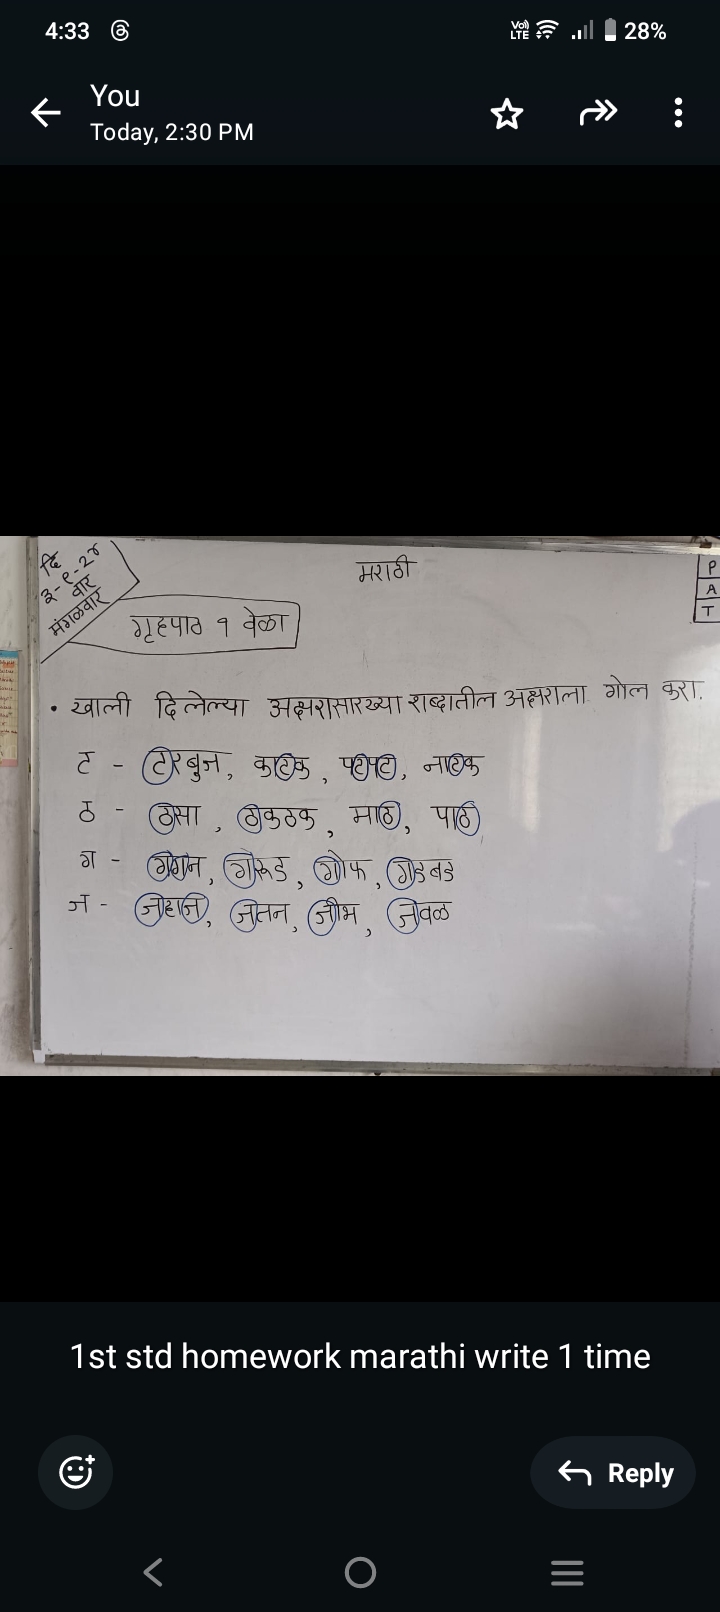 4:33 Vo) LTE 28%
You
Today, 2:30 PM
दि
३-९-२४
वार
मंगळवार
मराठी
P
A
T
गृहपाठ १ वेळा
• खाली दिलेल्या अक्षरासारख्या शब्दातील अक्षराला गोल करा.
ट - टरबुज, कटक, पटपट, नाटक
ठ - ठसा, ठकठक, माठ, पाठ
ग - गगन, गरूड, गोफ, गडबड
ज - जहाज, जतन, जीभ, जवळ
1st std homework marathi write 1 time
Reply